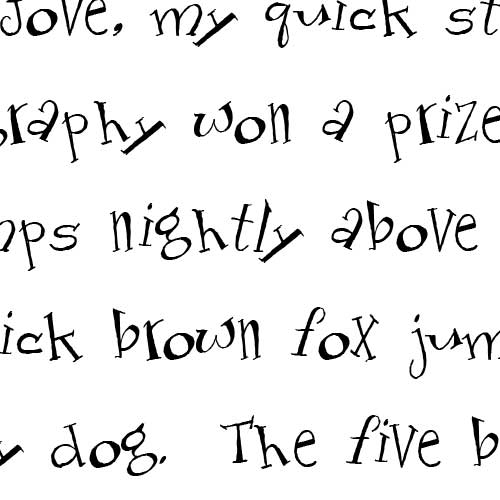 Jove, my quick st
raphy won a prize
mps nightly above
ick brown fox jum
y dog. The five b